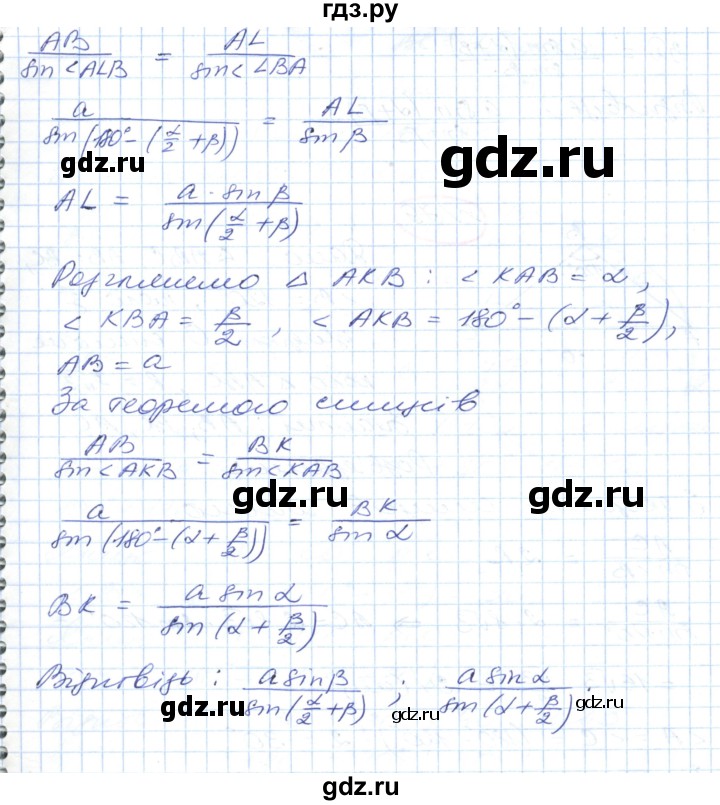 гдз.ру
AB / sin <ALB = AL / sin < LBA
a / sin (180° − (α/2 + β)) = AL / sin β
gdz.ru
gdz.ru
AL = a · sin β / sin (α/2 + β)
Розглянемо △ AKB : < KAB = α,
< KBA = β/2 , < AKB = 180° − (α + β/2),
AB = a
За теоремою синусів
AB / sin < AKB = BK / sin < KAB
gdz.ru
gdz.ru
a / sin (180° − (α + β/2)) = BK / sin α
BK = a sin α / sin (α + β/2)
Відповідь : a sin β / sin (α/2 + β) ; a sin α / sin (α + β/2) .
gdz.ru
gdz.ru
gdz.ru